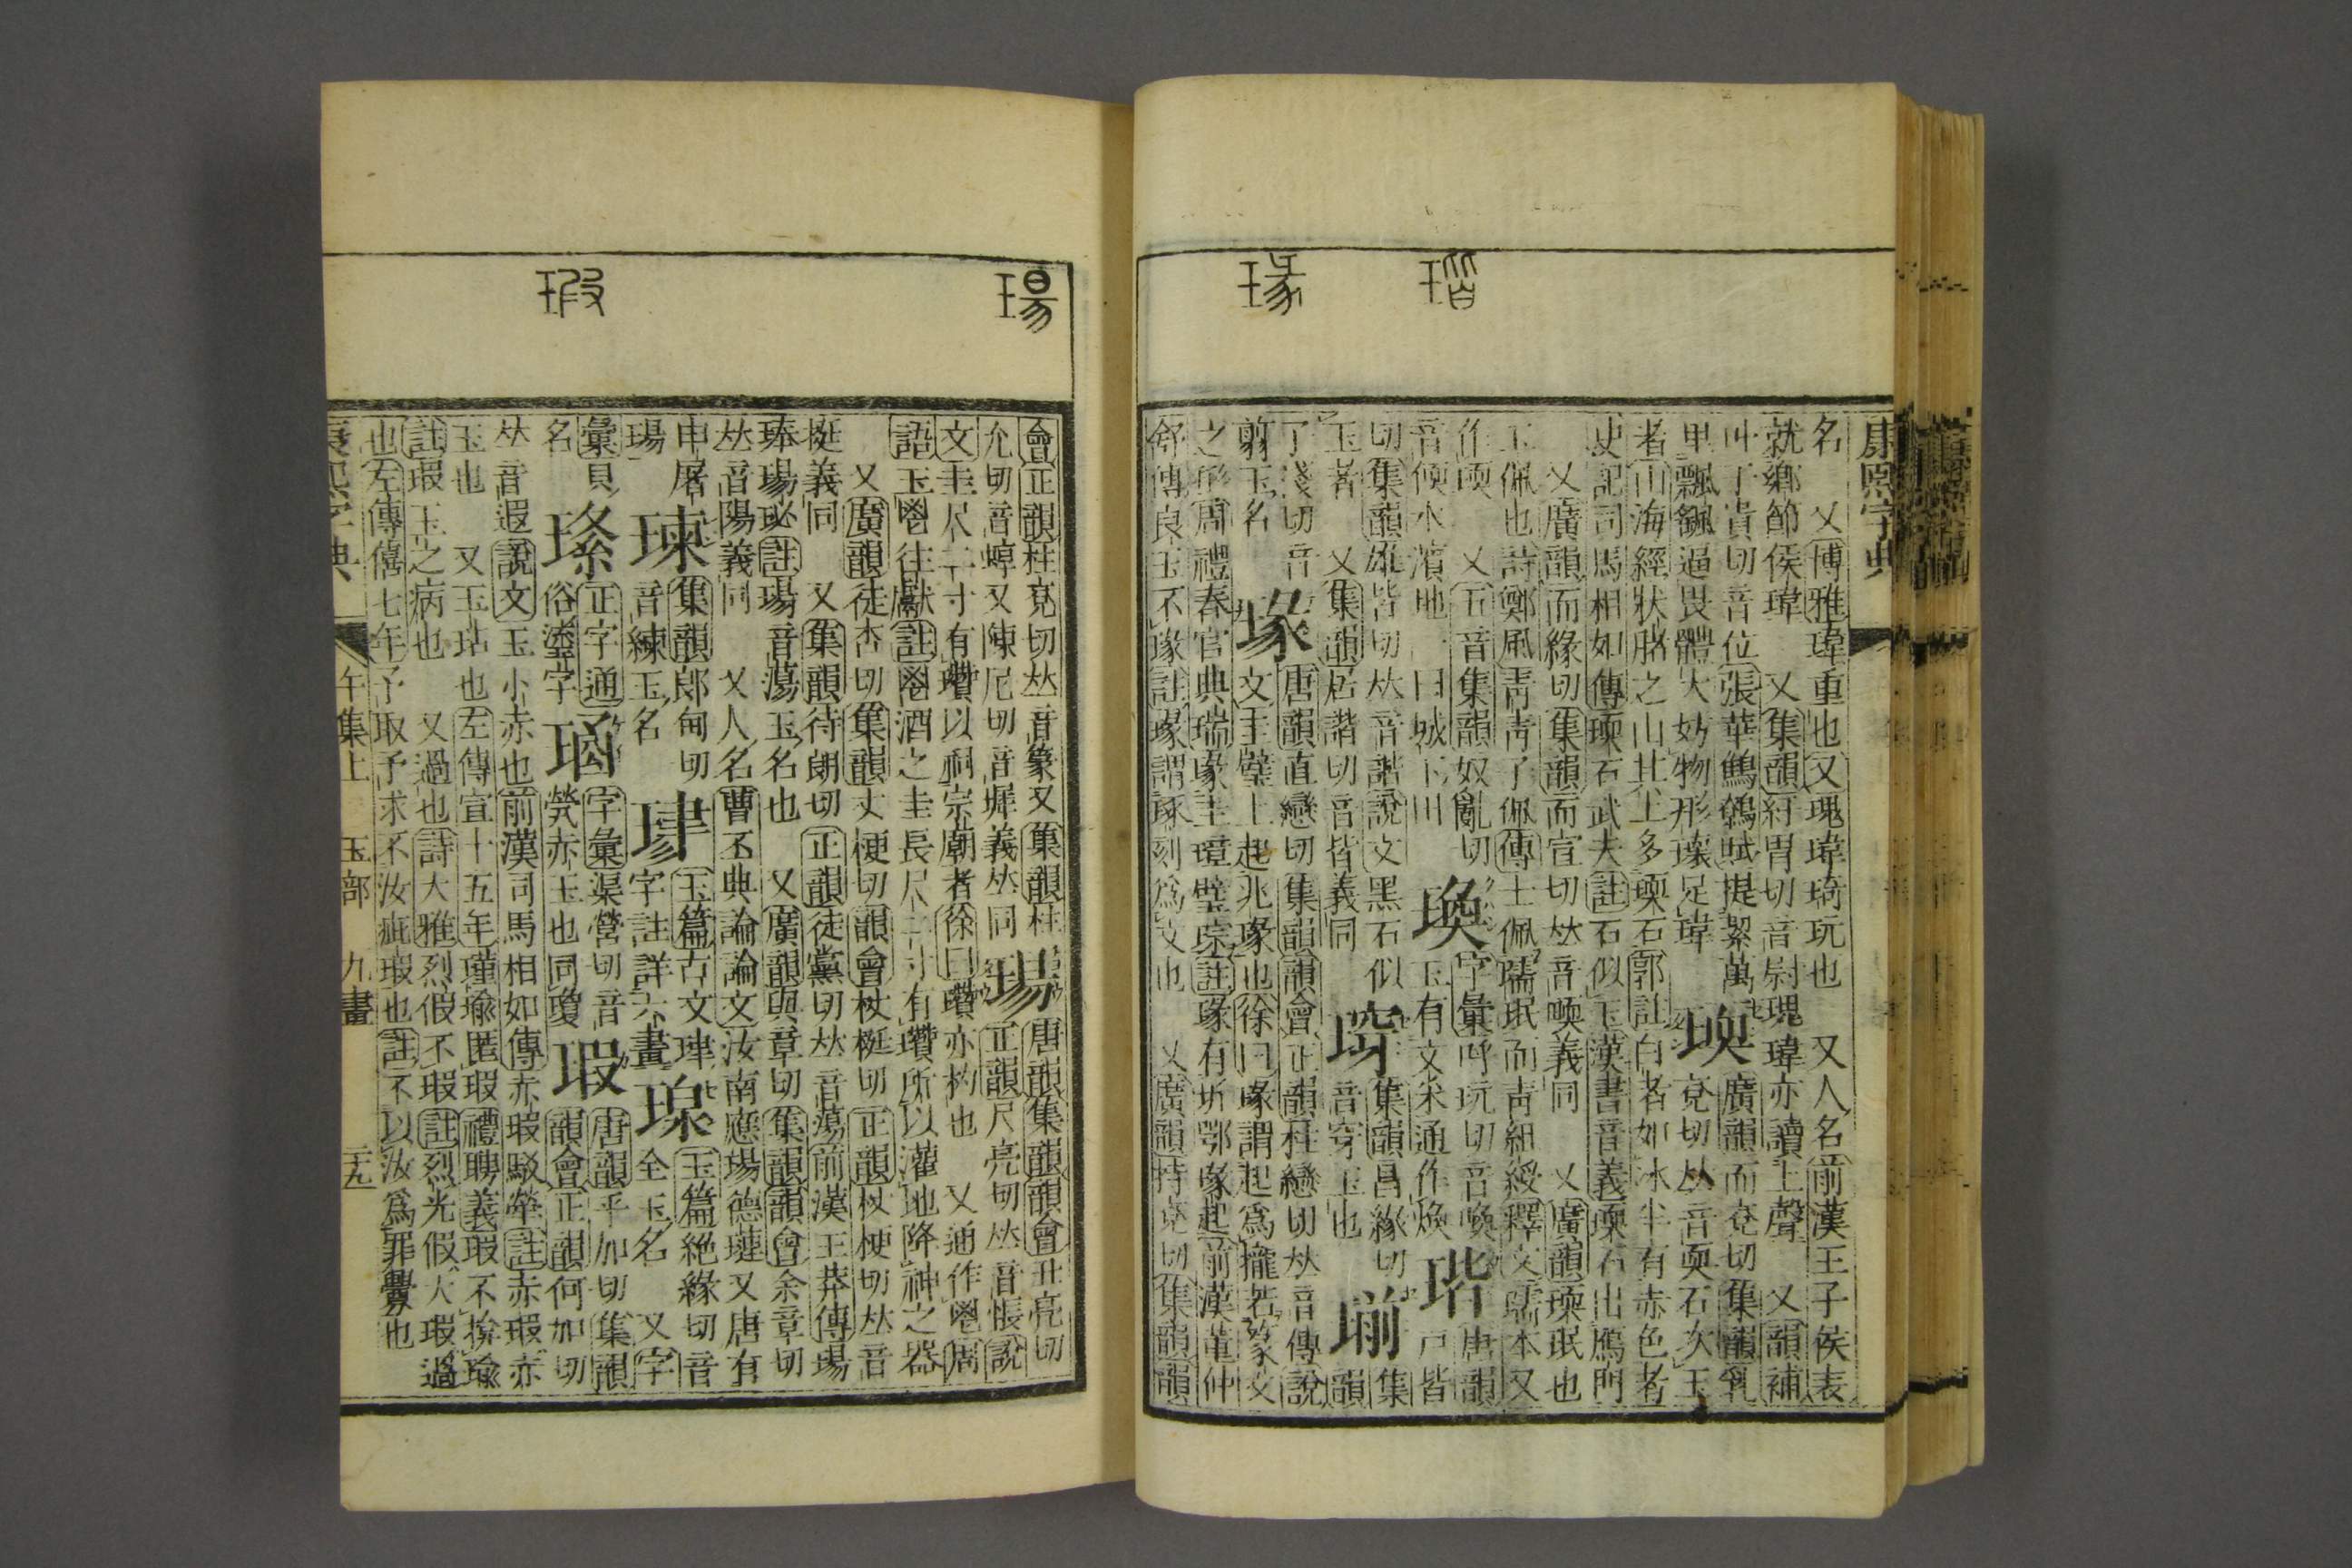 瑎
瑑
康熙字典
名 又博雅瑋重也又瑰瑋琦玩也 又人名前漢王子侯表
就鄉節侯瑋 又集韻紆胃切音尉瑰瑋亦讀上聲 又韻補
叶于貴切音位張華鷦鷯賦提挈萬
甲飄颻逼畏體大妨物形瓌足瑋
瑌
廣韻而兗切集韻乳
兗切𠀤音耎石次玉
者山海經狀脇之山其上多瑌石郭註白者如冰半有赤色者
史記司馬相如傳瑌石武夫註石似玉漢書音義瑌石出鴈門
又廣韻而緣切集韻而宣切𠀤音㬉義同 又廣韻瑌珉也
玉佩也詩鄭風靑靑子佩傳士佩瓀珉而靑組綬釋文瓀本又
作瑌 又五音集韻奴亂切
音偄水濱地一曰城下田
瑍
字彙呼玩切音喚
玉有文采通作煥
瑎
唐韻
戶皆
切集韻雄皆切𠀤音諧說文黑石似
玉者 又集韻居諧切音皆義同
瑏
集韻昌緣切
音穿玉也
瑐
集
韻
子淺切音
翦玉名
瑑
唐韻直戀切集韻韻會正韻柱戀切𠀤音傳說
文圭璧上起兆瑑也徐曰瑑謂起爲壠若篆文
之形周禮春官典瑞瑑圭璋璧琮註瑑有圻鄂瑑起前漢董仲
舒傳良玉不瑑註瑑謂琢刻爲文也 又廣韻持兗切集韻韻
瑒
瑕
會正韻柱兗切𠀤音篆又集韻柱
允切音蜳又陳尼切音墀義𠀤同
瑒
唐韻集韻韻會丑亮切
正韻尺亮切𠀤音悵說
文圭尺二寸有瓚以祠宗廟者徐曰瓚亦杓也 又通作鬯周
語玉鬯往獻註鬯酒之圭長尺二寸有瓚所以灌地降神之器
又廣韻徒杏切集韻丈梗切韻會杖梃切正韻杖梗切𠀤音
梃義同 又集韻待朗切正韻徒黨切𠀤音蕩前漢王莽傳瑒
琫瑒珌註瑒音蕩玉名也 又廣韻與章切集韻韻會余章切
𠀤音陽義同 又人名曹丕典論論文汝南應瑒德璉又唐有
申屠
瑒
瑓
集韻郎甸切
音練玉名
𤦋
玉篇古文珒
字註詳六畫
瑔
玉篇絕緣切音
全玉名 又字
彙貝
名
𤦎
正字通
俗瑬字
𤦨
字彙渠營切音
煢赤玉也同瓊
瑕
唐韻乎加切集韻
韻會正韻何加切
𠀤音遐說文玉小赤也前漢司馬相如傳赤瑕駁犖註赤瑕赤
玉也 又玉玷也左傳宣十五年瑾瑜匿瑕禮聘義瑕不揜瑜
註瑕玉之病也 又過也詩大雅烈假不瑕註烈光假大瑕過
也左傳僖七年予取予求不汝疵瑕也註不以汝爲罪釁也
康熙字典 午集上 玉部 九畫 二九